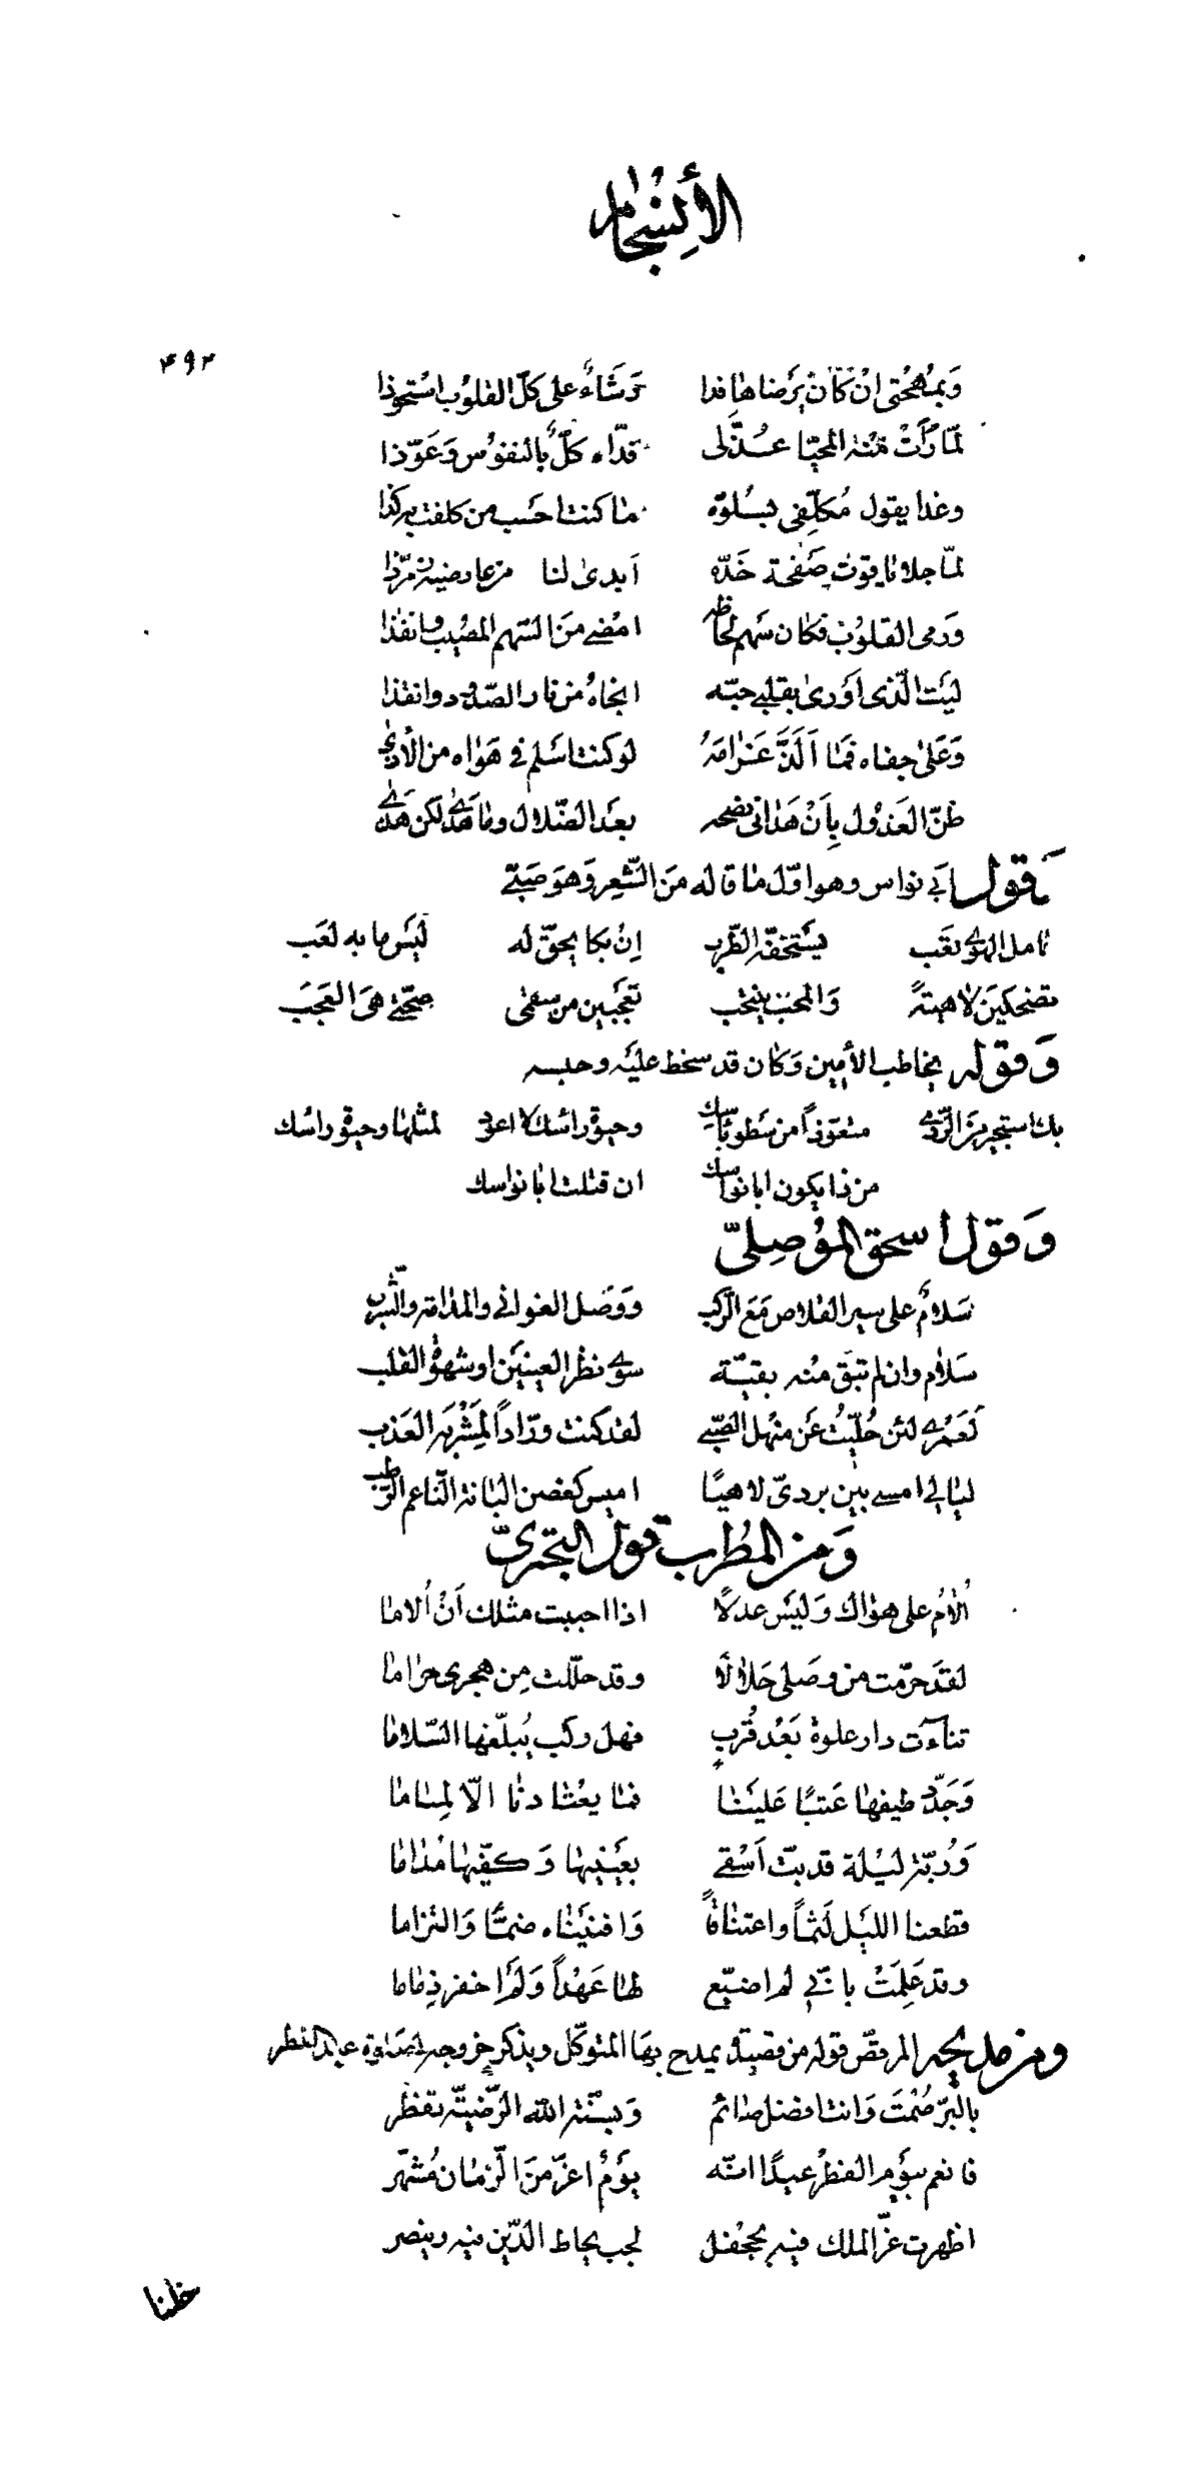 الأنسجام
٤٩٢
وَبمُهجتى انْ كَانَ يَرضاها فدا رَشَاءٌ على كلّ القلوُب استحوذا
لمّا رَأَتْ مْنه المحيّا عُذّلى فدّاه كلٌّ بالنفوُس وَعَوّذا
وغدا يقول مُكلّفى بسُلوّه ما كنت احسَب من كلفت به كذا
لمّا جلا ياقوت صَفحة خَدّه اَبدى لنا من عارضيه زمرّذا
وَرمى القلوُب فكان سَهم لحاظه امضى من السّهم المصُيب وانفذا
ليَت الّذى اَورى بقلبى حبّه انجاهُ من نار الصّدود وانقذا
وَعَلى جفاه فما اَلَذَّ غَرامَهُ لو كنت اسَلم فى هَواه من الأذى
ظنّ العَذول بِاَنْ هَدانى نصحه بعَد الضّلال وما هَدى لكن هَذى
وَقول ابى نواس وهو اوّل ما قاله منَ الشّعر وَهوَ صَبىّ
حامل الهوى تعَب يسَتخفّه الطّرب اِنْ بكا يحقّ له ليَس ما به لعَب
تضحكينَ لاهيةً وَالمحبّ ينتحب تعجَبين من سقمى صحّتى هىَ العَجَبَ
وَقوله يخاطب الأمين وَكان قد سخط عليَه وحبسه
بك استجير منَ الرّدى متعوّذاً من سَطو باسك وحيوة راسَك لا اعود لمثلها وحيوة راسُك
من ذا يكون ابا نواسك ان قتلت ابا نواسك
وَقول اسحق الموُصِلىّ
سَلامٌ على سير القلاص مَعَ الرّكب ووَصَل الغوانى والمدامة والشّرب
سَلام وان لم تبَق مْنه بقيّة سوى نظر العينيَن او شهوة القلب
لَعَمْرى لئن حُلّئِتُ عَن منهل الصّبى لقد كنت ورّاداً لِمَشْربه العَذب
ليالى امسى بَين بردىّ لاهيًا اميس كغصن البانة النّاعم الرّطب
وَمن المطُرب قول البحترىّ
اُلامُ على هواك وَليَس عدلاً اذا احببت مثلك اَنْ اُلاما
لقد حَرّمت من وصَلى حَلالاً وقد حلّلت مِن هجرى حراما
تناءَت دار علوة بَعْد قُربٍ فهل ركب يُبلّغها السّلاما
وَجَدّد طيفها عَتبًا عَليَنا فما يعْتادنا الّا لِماما
وَرُبّت ليْلة قد بتّ اَسْقى بعيَنيها وَكفّيها مُداما
قطعنا الليَل لَثماً واعتناقاً وَافنيَناه ضمًّا وَالتزاما
وقد عَلِمَتْ بانّى لم اضيّع لها عَهْداً وَلَم اخفر ذِماما
ومن مديحه المرقصّ قوله من قصيدة يمدح بهَا المتوكّل ويذكر خروجه لصَلوة عيد الفطر
بالبّر صُمْتَ وَانت افضل صائم وَبسُنّة الله الرّضيّة تفطر
فانعم بيوَم الفطرُ عيدًا انّه يوَمٌ اعزّ منَ الزّمان مُشهّر
اظهرت عزّ الملك فيه بجحْفل لجب يحاط الدّين فيه وينصر
خلنا